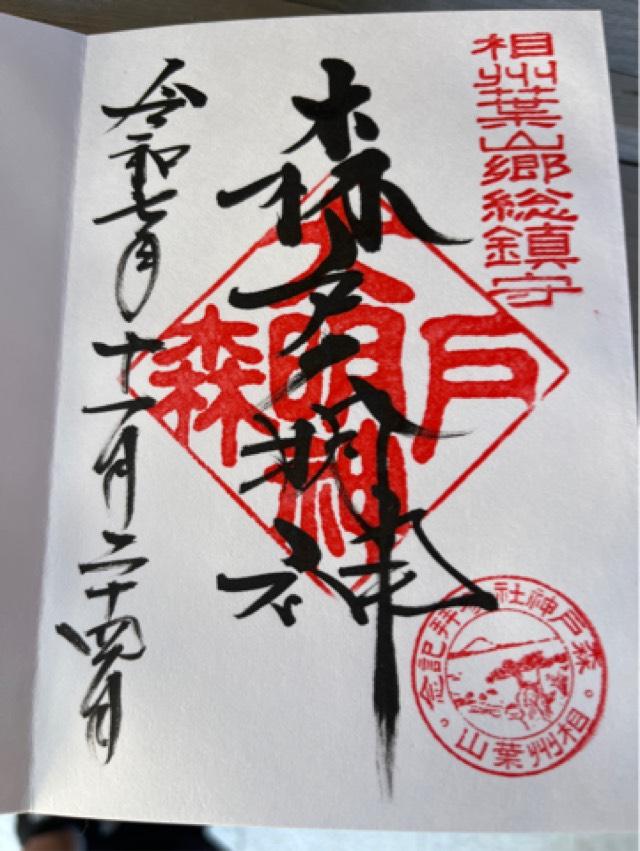 相州葉山郷総鎮守
森戸大明神
森戸大明神
令和七年十一月二十四日
森戸神社参拝記念
相州葉山